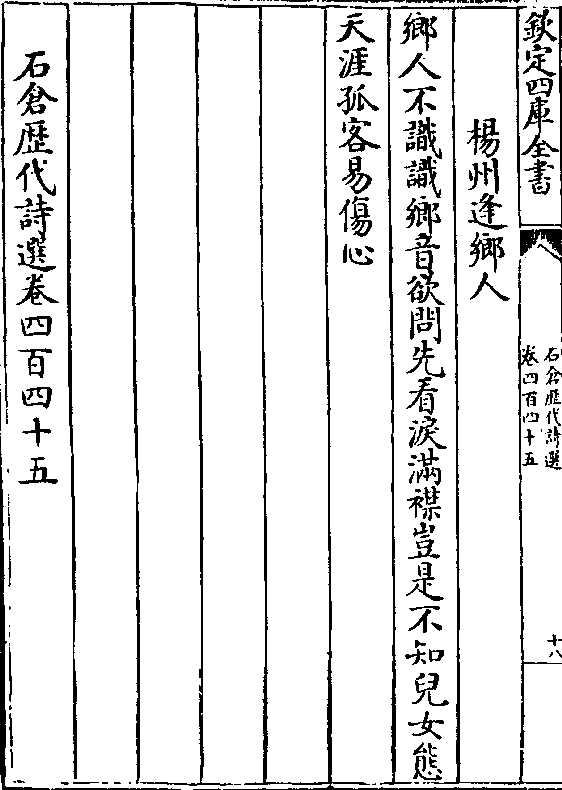 欽定四庫全書
石倉歴代詩選
卷四百四十五
十八
楊州逢鄉人
鄉人不識識鄉音欲問先看淚滿襟豈是不知兒女態
天涯孤客易傷心
石倉歴代詩選卷四百四十五